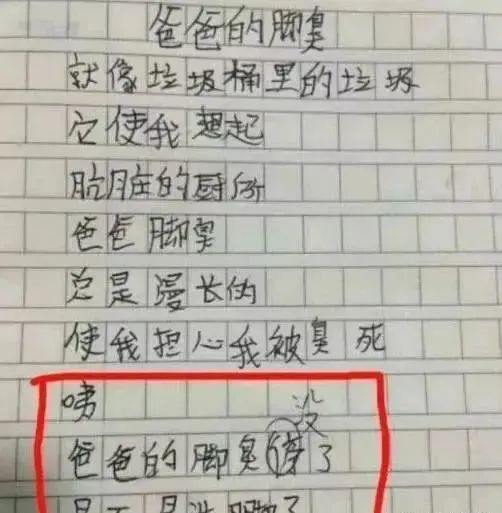 爸爸的脚臭
就像垃圾桶里的垃圾
它使我想起
肮脏的厨所
爸爸脚臭
总是漫长的
使我担心我被臭死
咦
爸爸的脚臭没了
是不是洗脚了